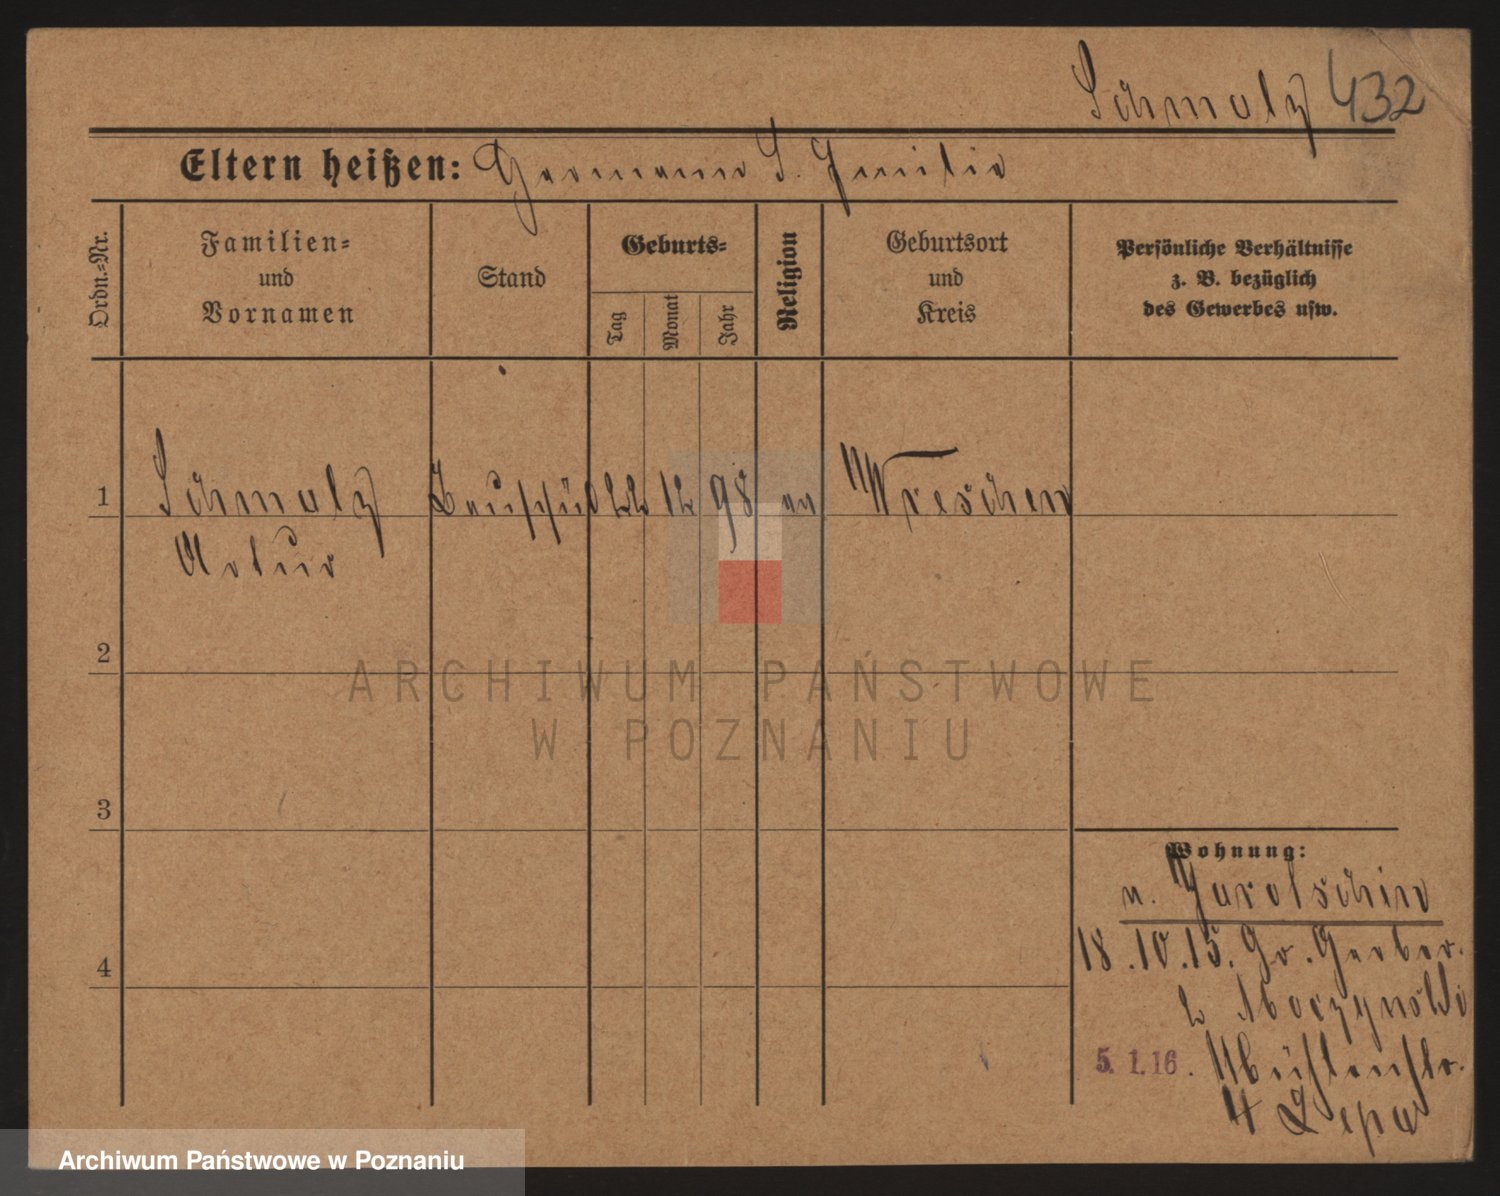 Schmolz 432
Eltern heißen: Hermann S. Emilie
Ordn.=Nr.
Familien=
und
Vornamen
Stand
Geburts=
Tag
Monat
Jahr
Religion
Geburtsort
und
Kreis
Persönliche Verhältnisse
z. B. bezüglich
des Gewerbes usw.
1 Schmolz 22 12 98 Wreschen
Artur
2
3
4
Wohnung:
n. Jarotschin
18.10.15. Gr. Gerber.
2
5. 1. 16.
4
ARCHIWUM PAŃSTWOWE
W POZNANIU
Archiwum Państwowe w Poznaniu